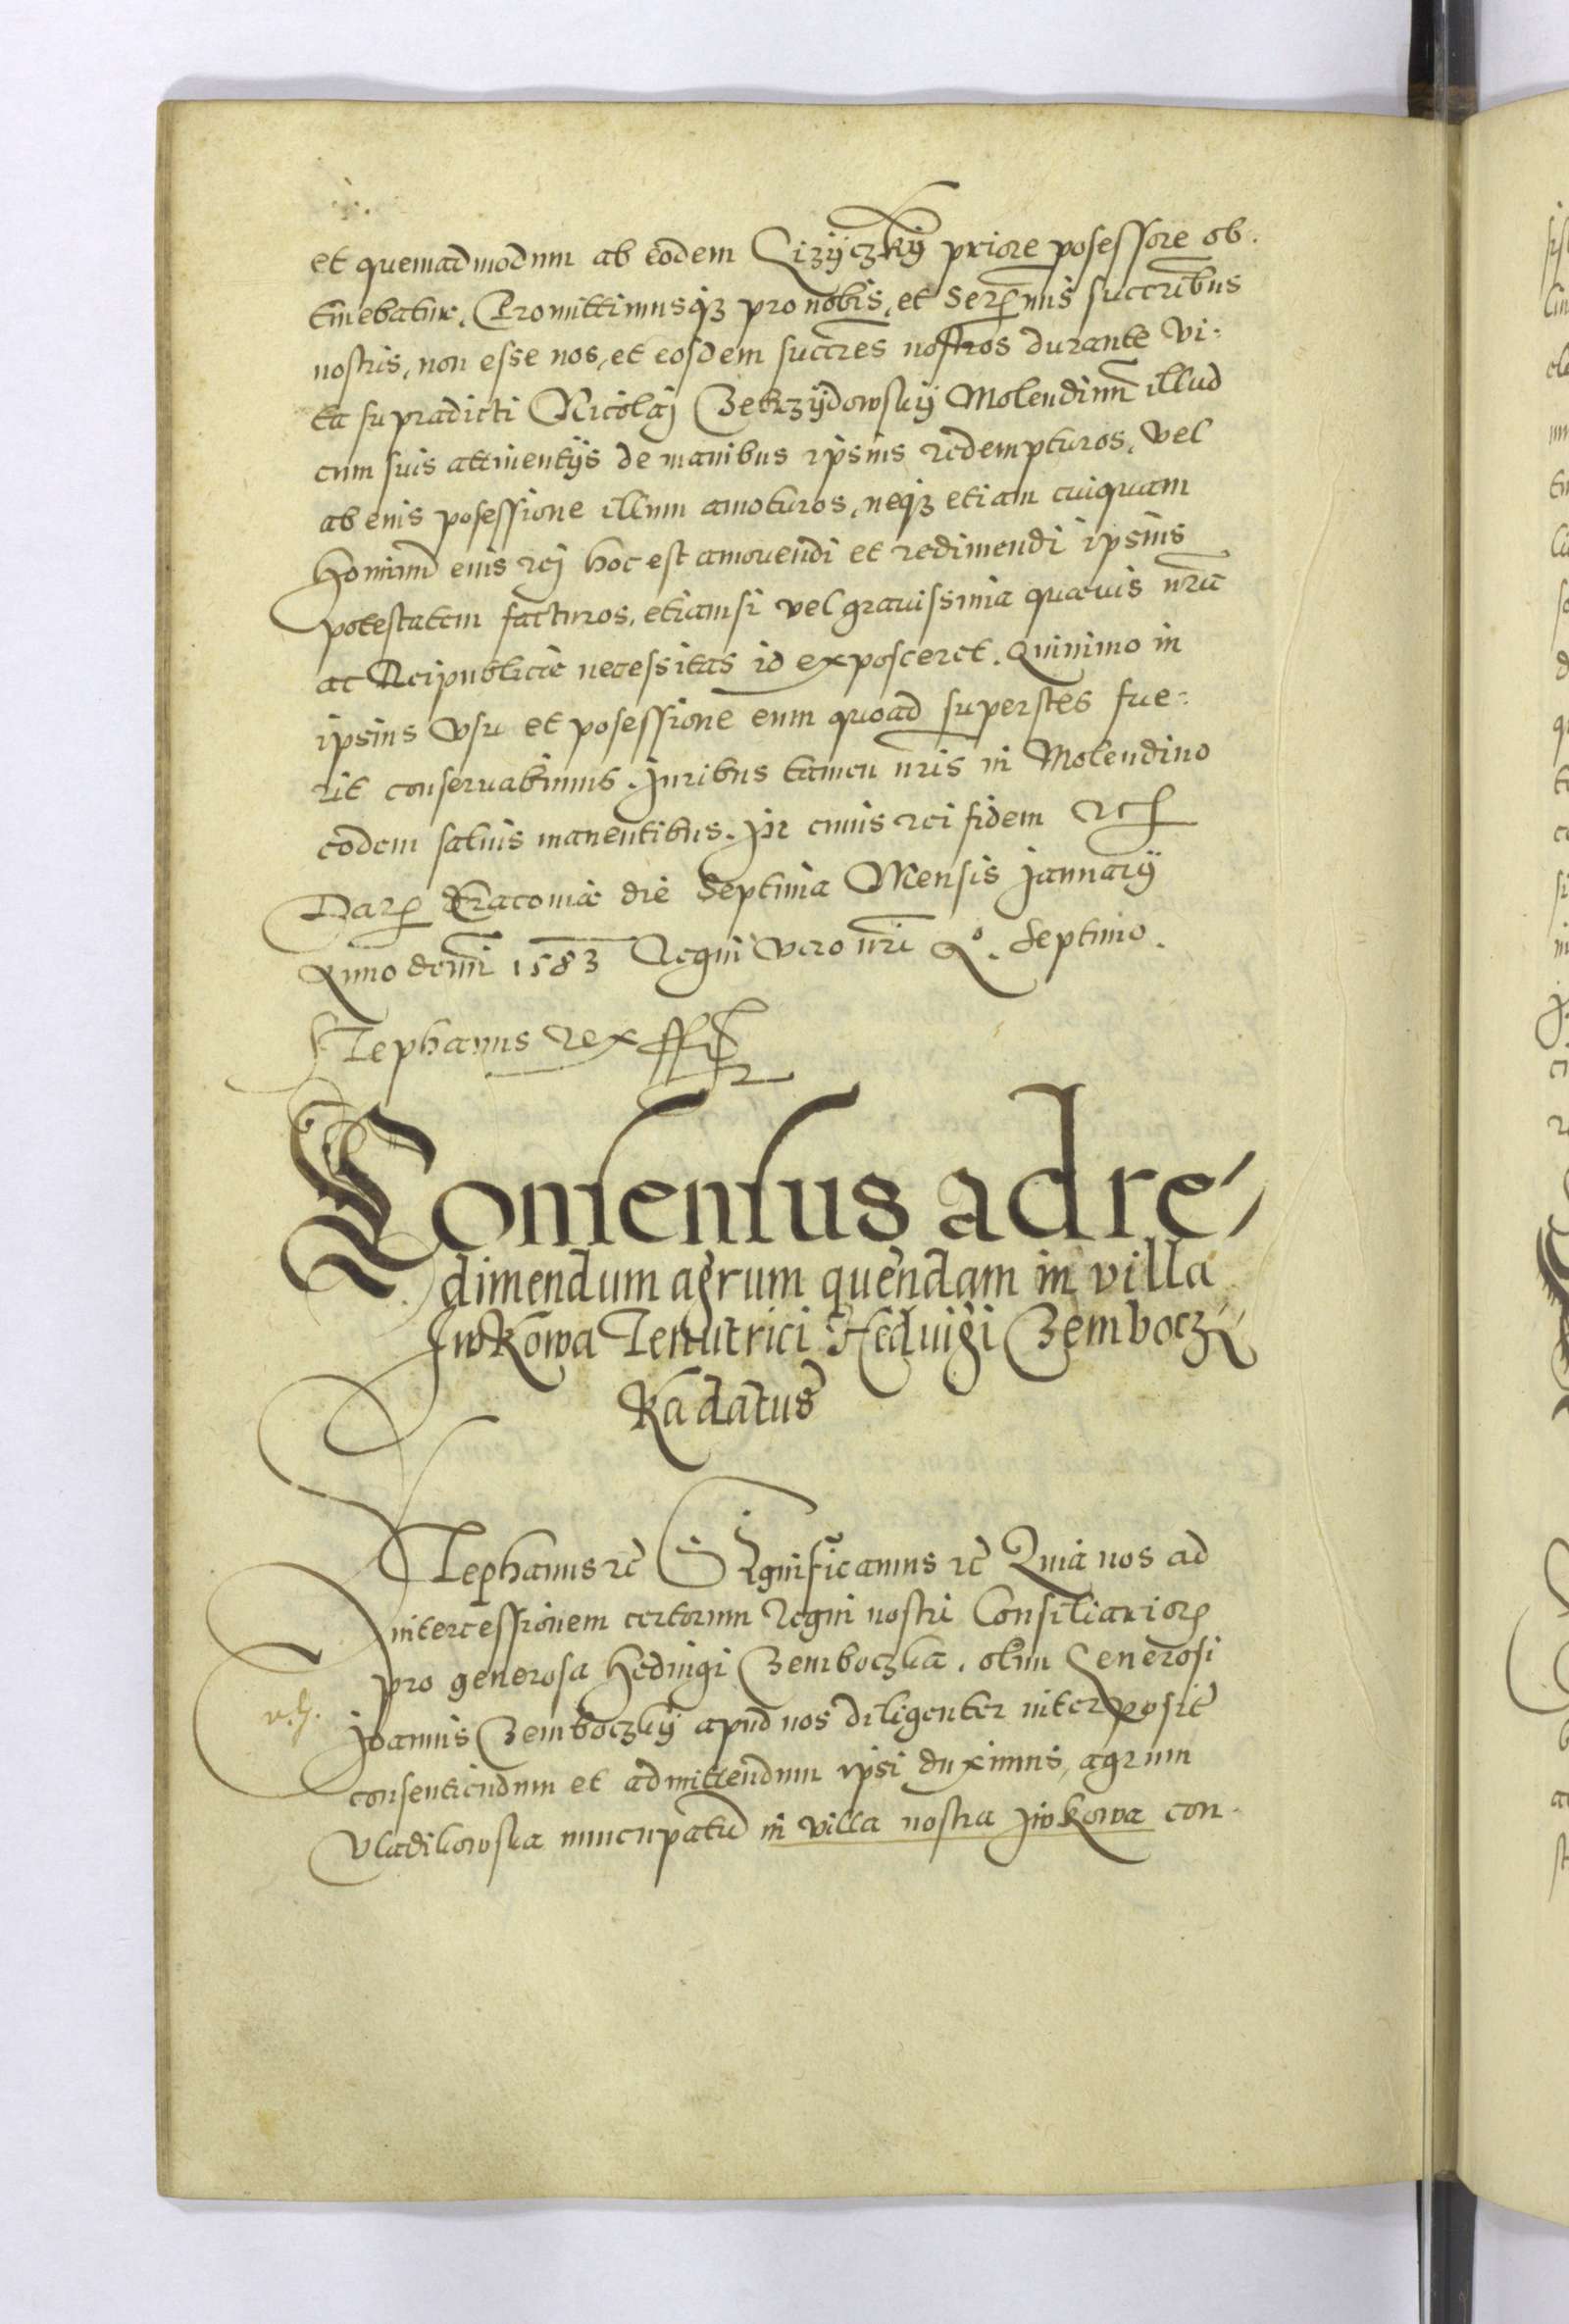 et quemadmodum ab eodem Lizÿczkÿ priore posessore ob-
tinebatur. Promittimusqȝ pro nobis, et Serēmis succribus
nostris, non esse nos, et eosdem succres nostros durante vi-
ta supradicti Nicolaj Zebrzÿdowskÿ Molendinū illud
cum suis attinentÿs de manibus ipsius redempturos, vel
ab eius posessione illum amoturos, neqȝ etiam cuiquam
hominū eius rej hoc est amovendi et redimendi ipsius
potestatem facturos, etiamsi vel gravissima quævis nra
ac Reipublicæ necessitas id exposceret. Quinimo in
ipsius vsu et posessione eum quoad superstes fue-
rit conservabimus. Juribus tamen nris in Molendino
eodem salvis manentibus. In cuius rei fidem etc
Dat Cracoviæ die Septima Mensis Januarÿ
Anno domī 1583 Regni vero nri Ao. Septimo.
Stephanus Rex sspt
Consensus ad re-
dimendum agrum quendam in villa
Iwkowa Tenutrici Heduigi Zembocz-
ka datus
Stephanus etc Significamus etc Quia nos ad
intercessionem certorum Regni nostri Consiliarior
pro generosa Heduigi Zemboczka, olim Generosi
Joannis Zemboczkÿ apud nos diligenter interposit
consentiendum et admittendum ipsi duximus, agrum
Vladikowska nuncupatū in villa nostra Iwkowa con-